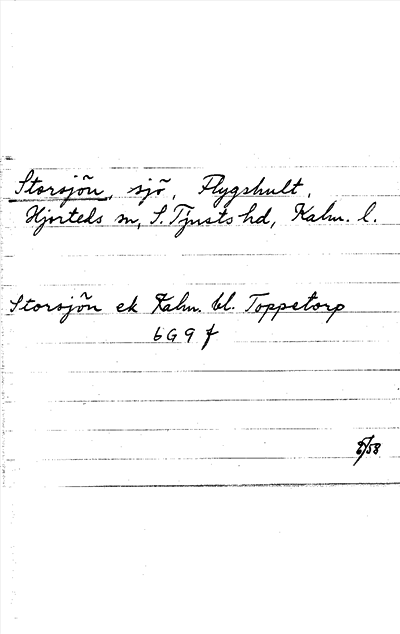 Storsjön, sjö, Flygshult,
Hjorteds sn, S. Tjusts hd, Kalm. l.
Storsjön ek Kalm. bl. Toppetorp
6G 9 f
6/58